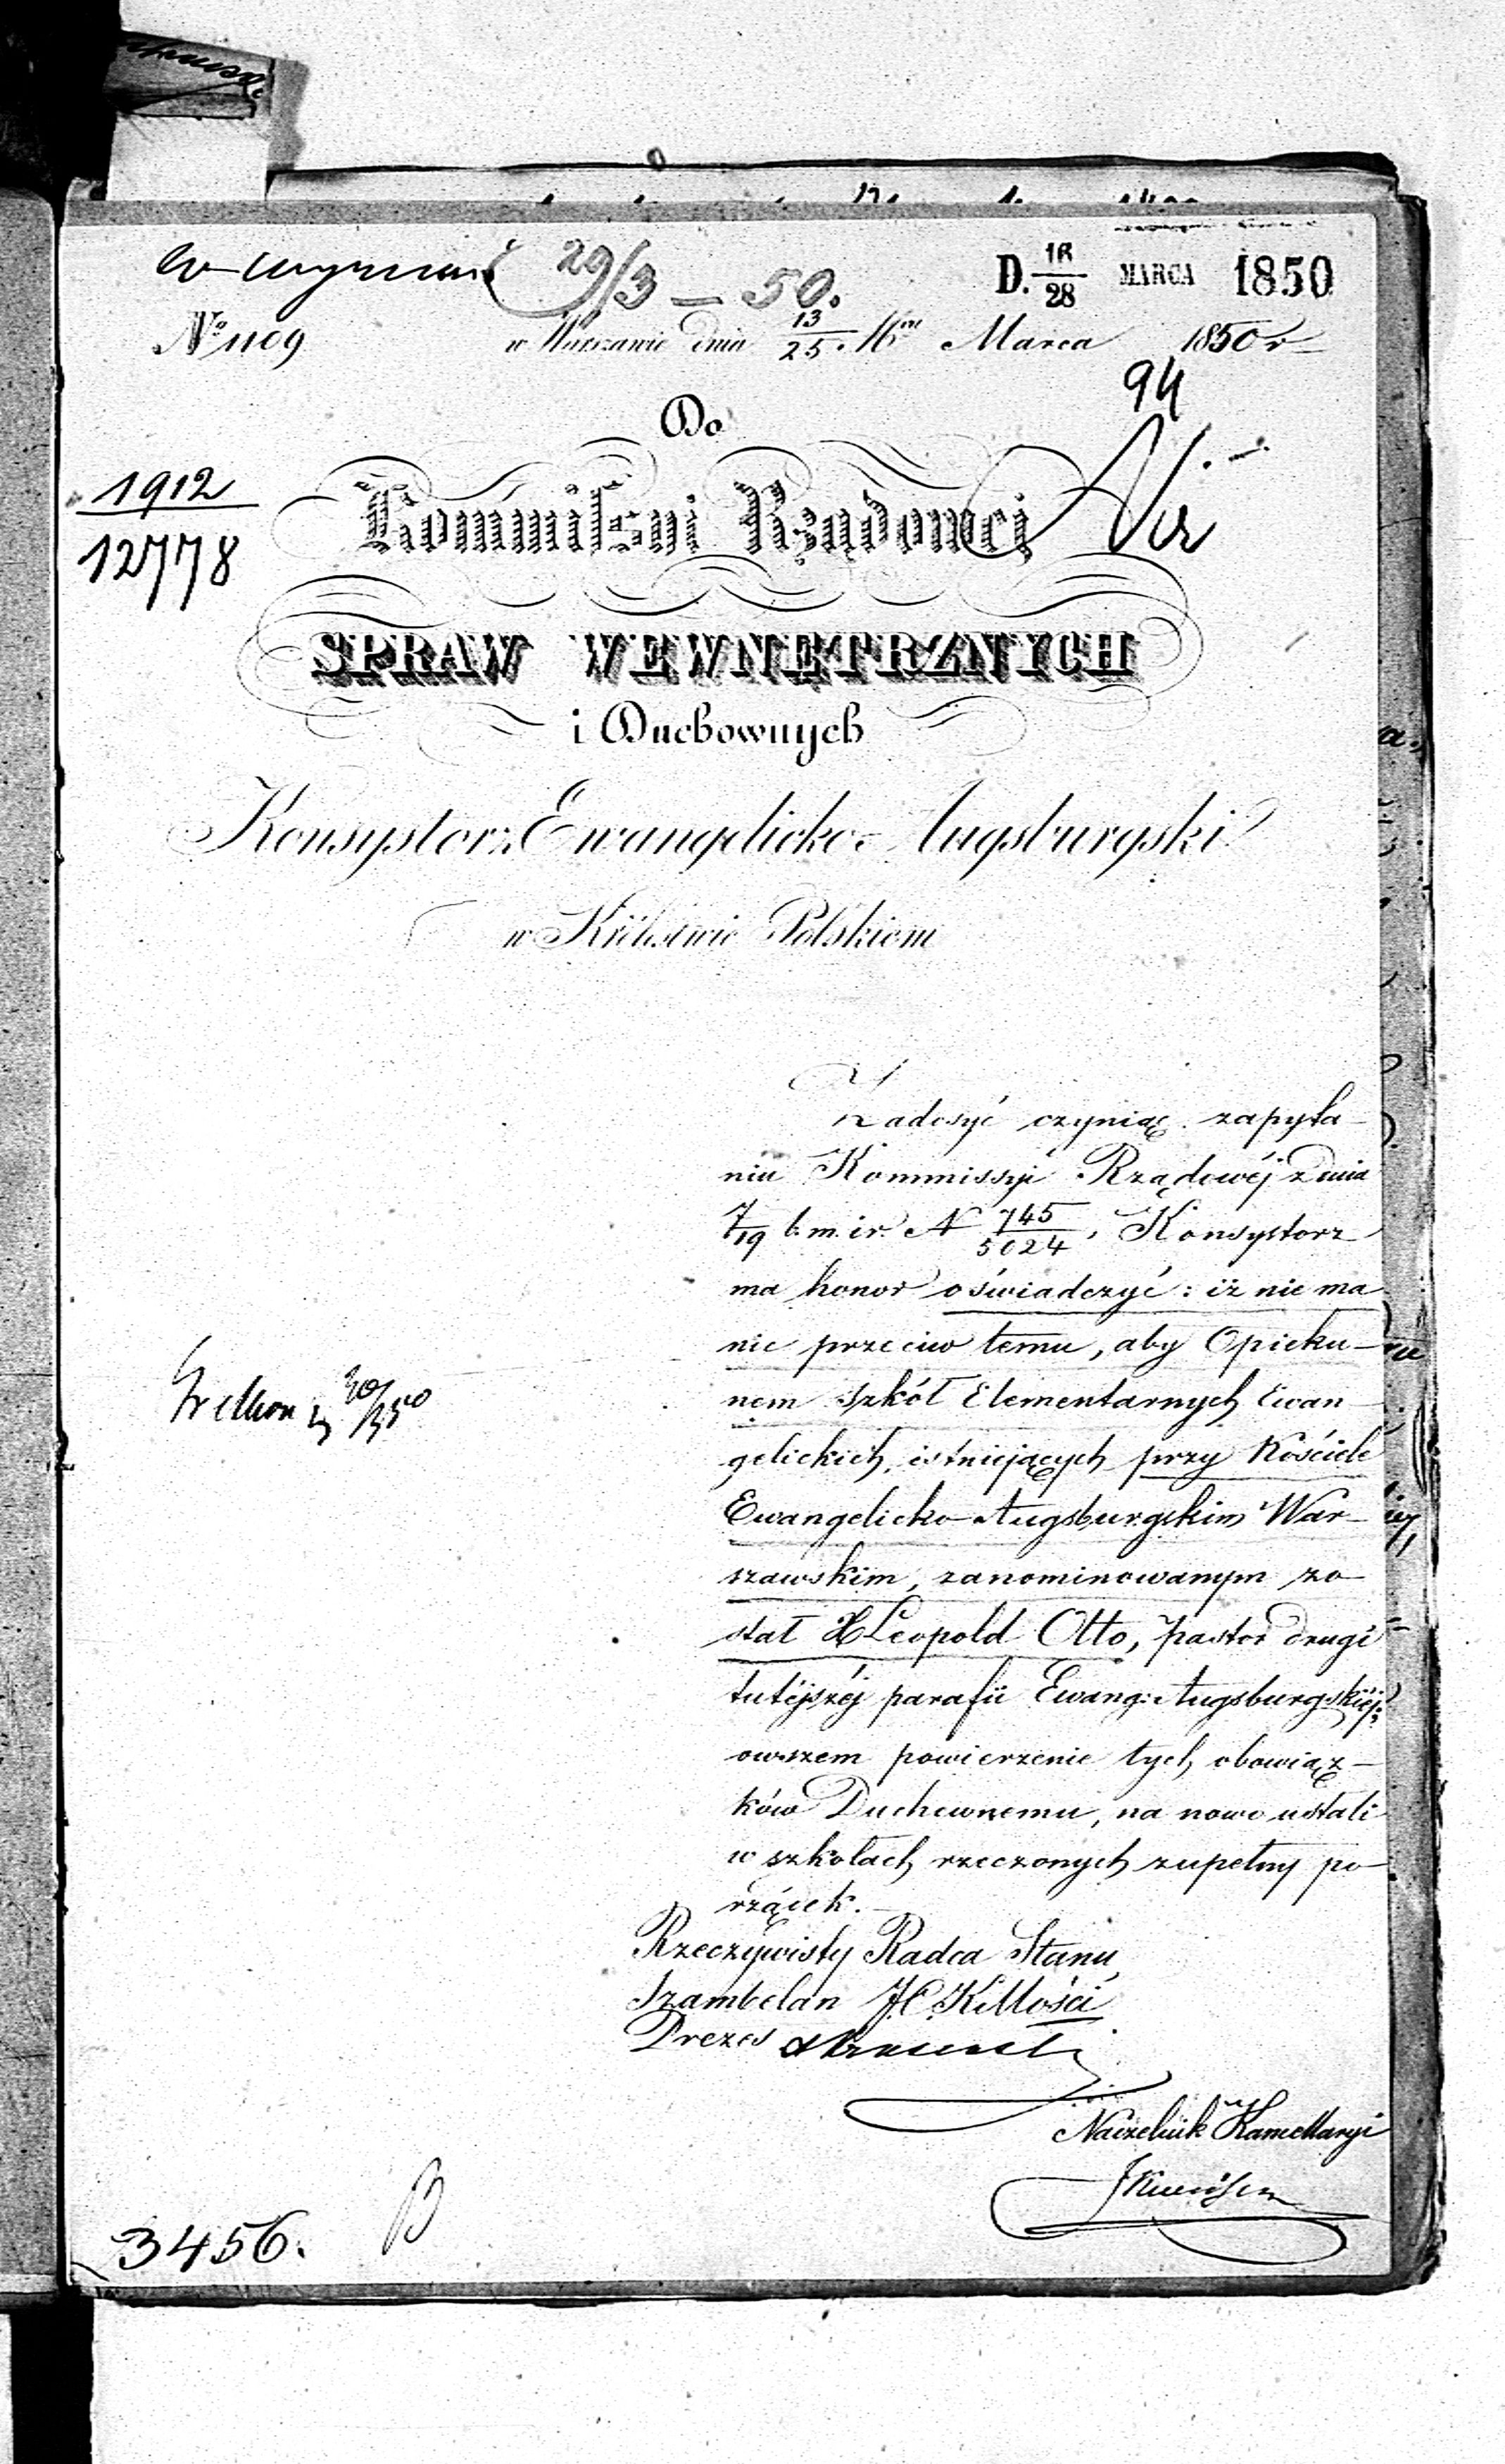 29/3 – 50.
D. 16/28 MARCA 1850
№ 1109
w Warszawie dnia 13/25 Marca 1850 r
94
Do
1912
12778
Kommissyi Rządowej
SPRAW WEWNĘTRZNYCH
i Duchownych
Konsystorz Ewangelicko-Augsburgski
w Królestwie Polskiem
Zadosyć czyniąc zapyta-
niu Kommissyi Rządowéj z dnia
7/19 b. m. i r. N 745/5024, Konsystorz
ma honor oświadczyć: iż nie ma
nic przeciw temu, aby Opieku-
nem szkół Elementarnych Ewan-
gelickich, istniejących przy Kościele
Ewangelicko-Augsburgskim War-
szawskim, zanominowanym zo-
stał X Leopold Otto, Pastor drugi
tutéjszéj parafii Ewang: Augsburgskiéj;
owszem powierzenie tych obowiąz-
ków Duchownemu, na nowo ustali
w szkołach rzeczonych zupełny po-
rządek.
Rzeczywisty Radca Stanu,
Szambelan J. C. K. Mości
Prezes
Naczelnik Kancellaryi
3456.
B